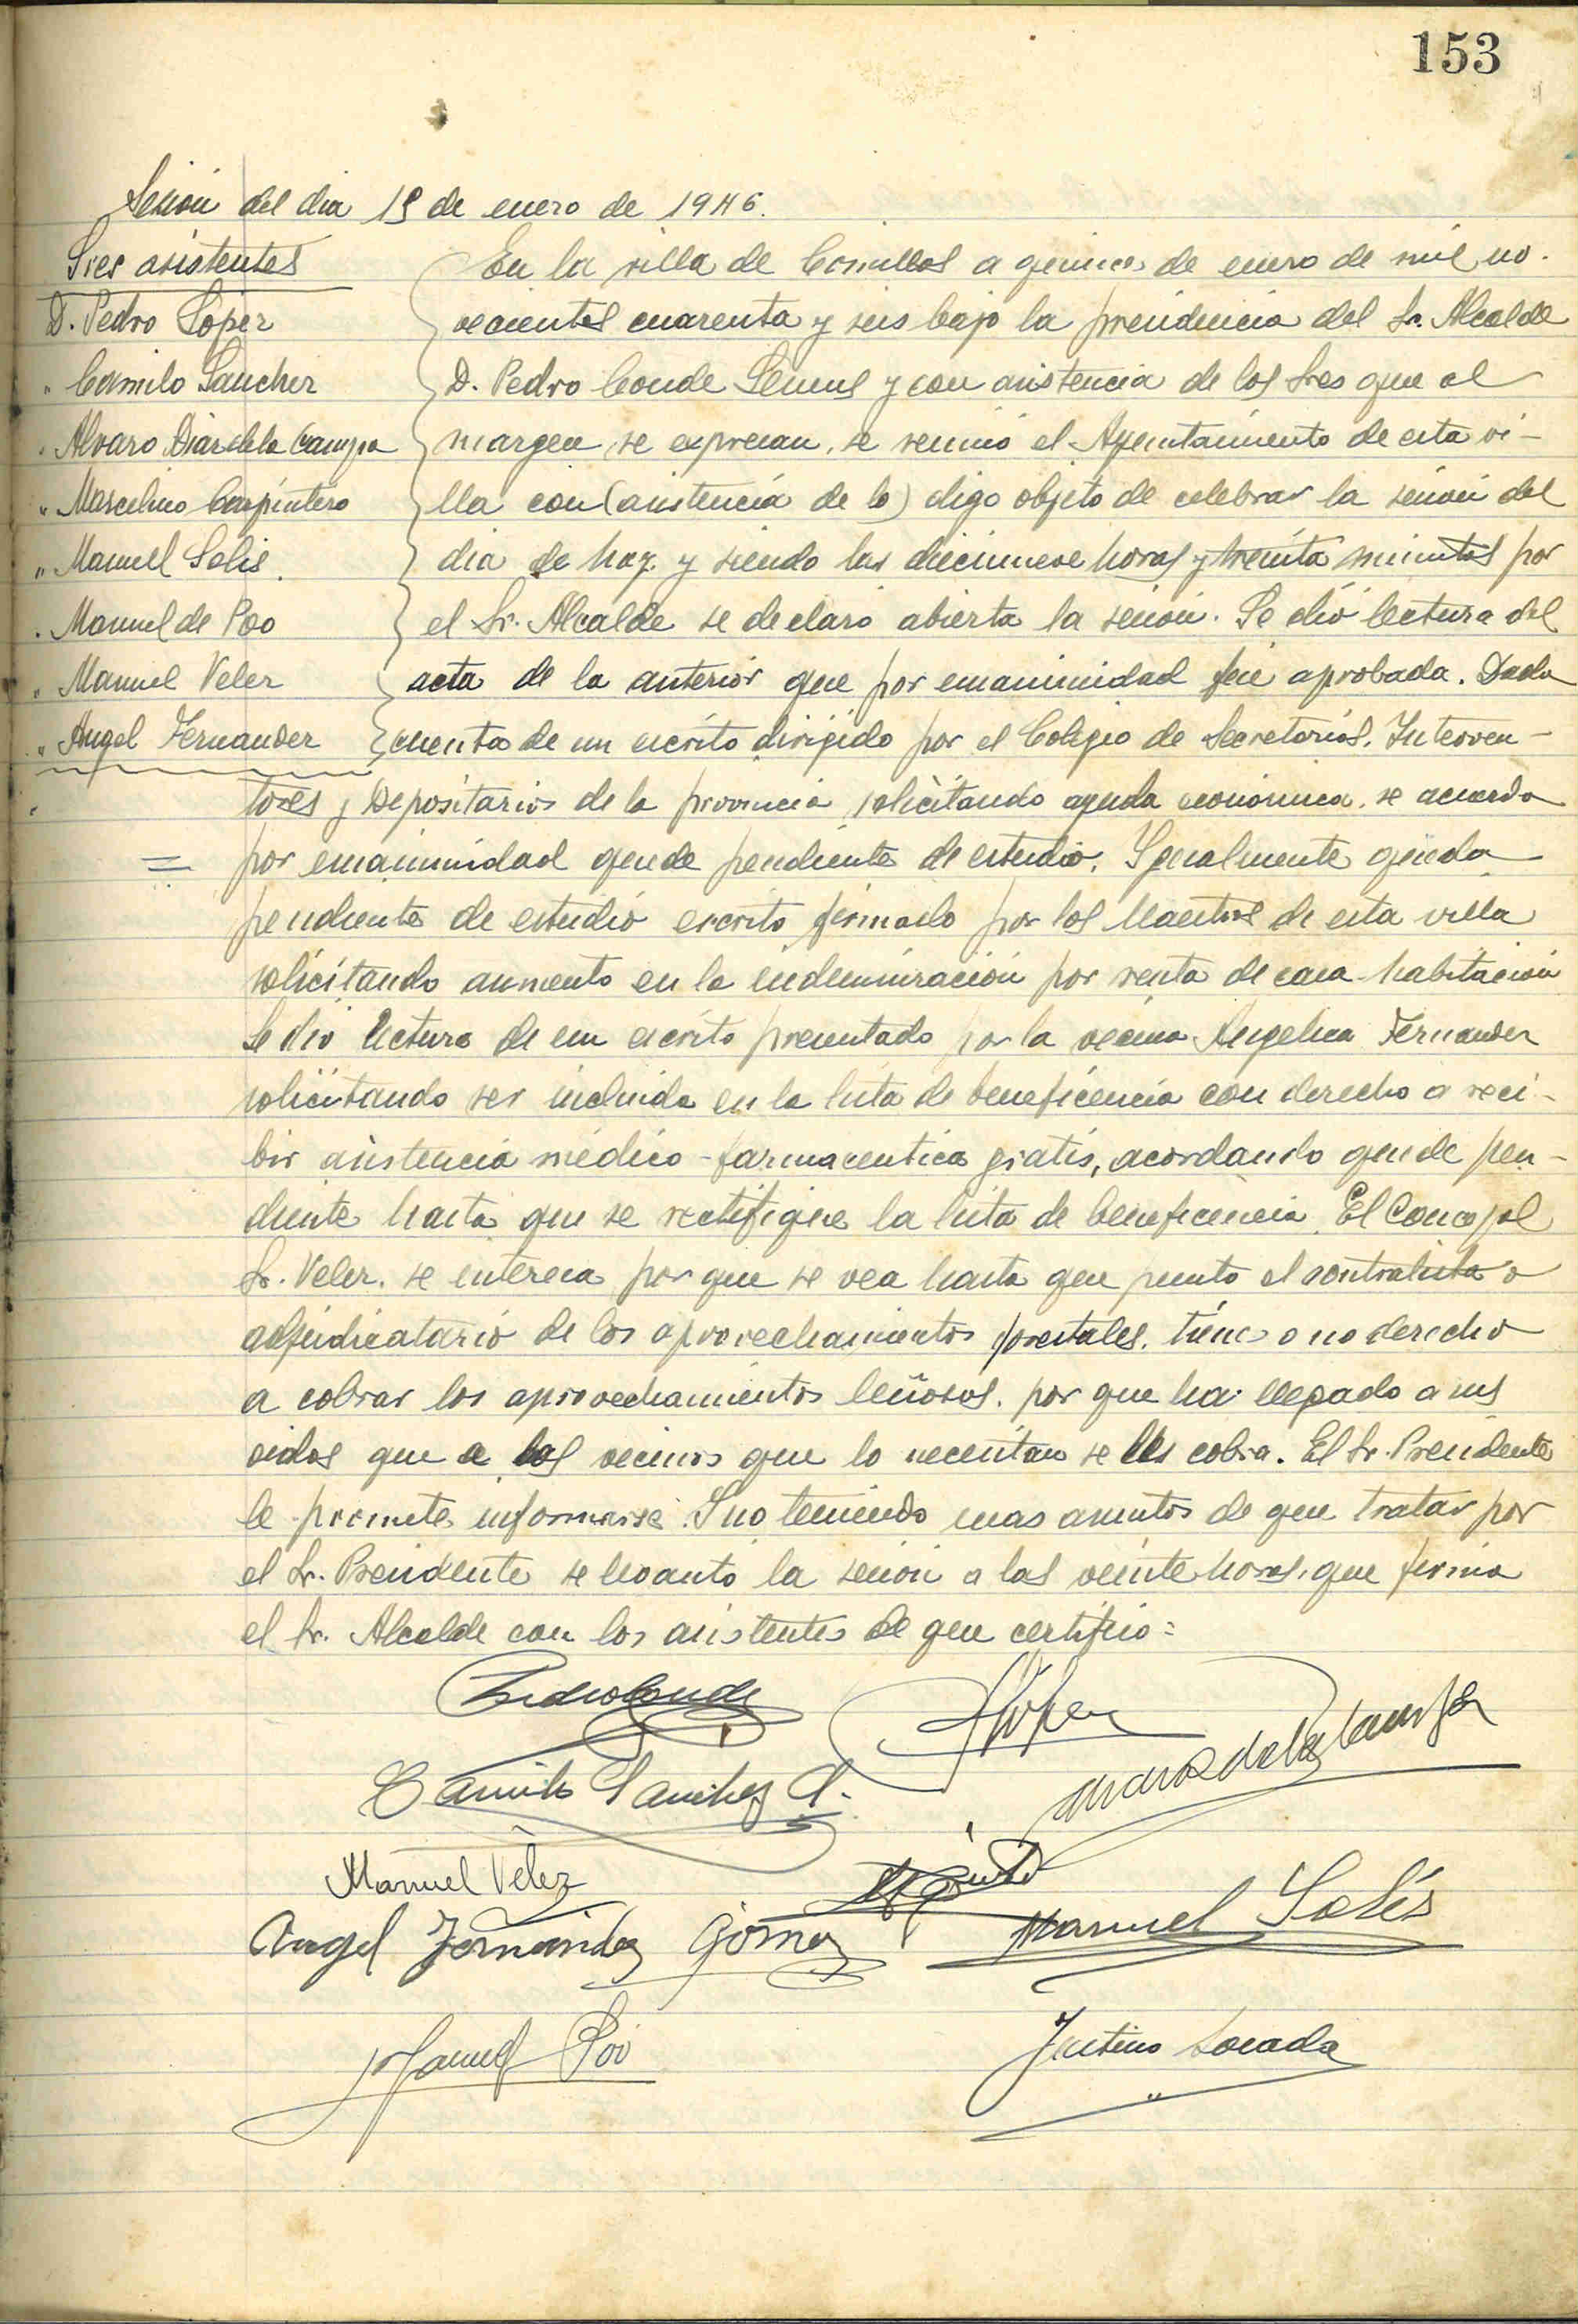 153
Sesion del dia 15 de enero de 1946.
Sres asistentes
D. Pedro Lopez
" Camilo Sanchez
" Alvaro Diaz de la Campa
" Marcelino Carpintero
" Manuel Solis
" Manuel de Poo
" Manuel Velez
" Angel Fernandez
En la villa de Comillas a quince de enero de mil no-
vecientos cuarenta y seis bajo la presidencia del Sr. Alcalde
D. Pedro Conde y con asistencia de los Sres que al
margen se expresan, se reunió el Ayuntamiento de esta vi-
lla con (asistencia de lo) digo objeto de celebrar la sesion del
dia de hoy y siendo las diecinueve horas y treinta minutos por
el Sr. Alcalde se declaró abierta la sesión. Se dió lectura del
acta de la anterior que por unanimidad fué aprobada. Dada
cuenta de un escrito dirigido por el Colegio de Secretarios, Interven-
tores y Depositarios de la provincia solicitando ayuda económica, se acuerda
por unanimidad quede pendiente de estudio. Igualmente queda
pendiente de estudio escrito firmado por los Maestros de esta villa
solicitando aumento en la indemnización por renta de casa-habitación
Se dió lectura de un escrito presentado por la vecina Angelica Fernandez
solicitando ser incluida en la lista de beneficencia con derecho a reci-
bir asistencia médico-farmaceutica gratis, acordando quede pen-
diente hasta que se rectifique la lista de beneficencia. El Concejal
Sr. Velez. se interesa por que se vea hasta que punto el contratista o
adjudicatario de los aprovechamientos forestales, tiene o no derecho
a cobrar los aprovechamientos leñosos, por que ha llegado a sus
oidos que a los vecinos que lo necesitan se les cobra. El Sr. Presidente
le promete informarse. Y no teniendo mas asuntos de que tratar por
el Sr. Presidente se levantó la sesión a las veinte horas, que firma
el Sr. Alcalde con los asistentes de que certifico=
Pedro Conde
PLopez
Camilo Sanchez
Alvaro D de la Campa
Manuel Velez
Angel Fernandez Gómez
Manuel Solís
Manuel Poo
Justino Losada